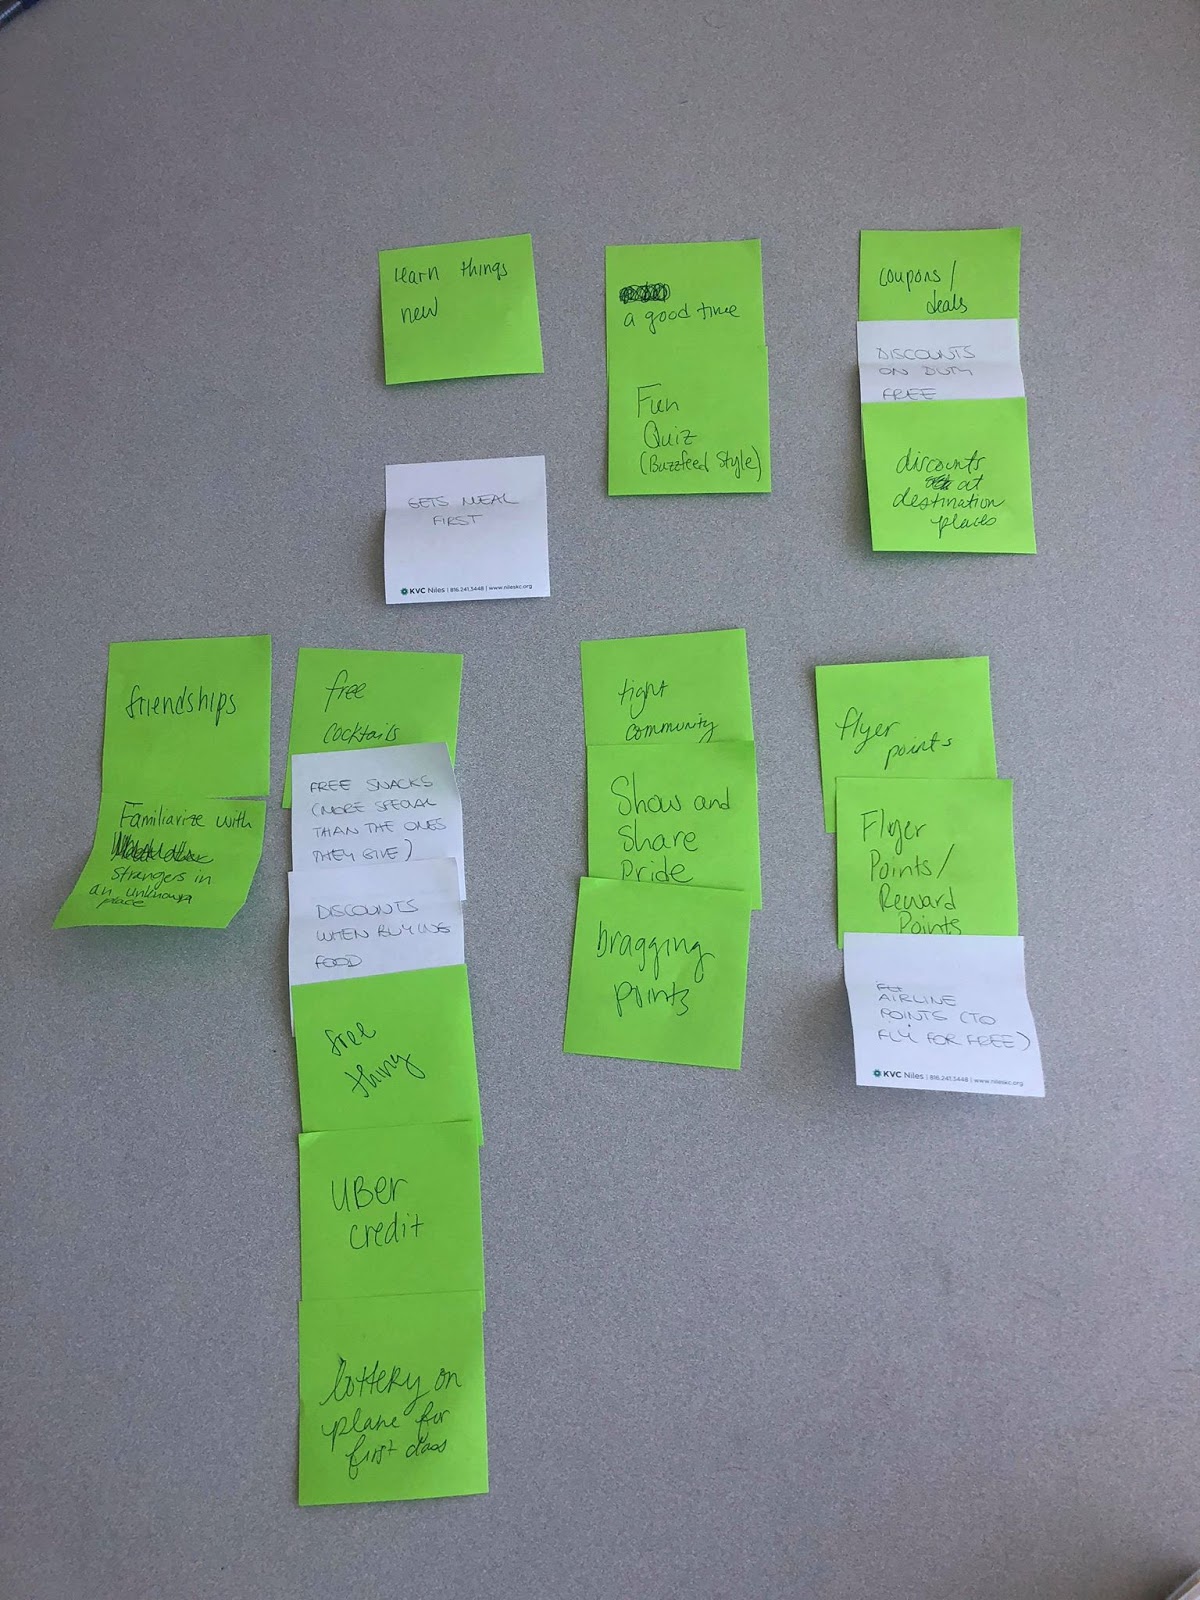 learn things
new
a good time
Fun
Quiz
(Buzzfeed Style)
coupons/
deals
DISCOUNTS
ON DUTY
FREE
discounts
at
destination
places
GETS MEAL
FIRST
KVC Niles | 816.241.3448 | www.nileskc.org
friendships
Familiarize with
strangers in
an unknown
place
free
cocktails
FREE SNACKS
(MORE SPECIAL
THAN THE ONES
THEY GIVE)
DISCOUNTS
WHEN BUYING
FOOD
free
thing
UBER
credit
lottery on
plane for
first class
tight
community
Show and
Share
Pride
bragging
points
flyer
points
Flyer
Points/
Reward
Points
AIRLINE
POINTS (TO
FLY FOR FREE)
KVC Niles | 816.241.3448 | www.nileskc.org